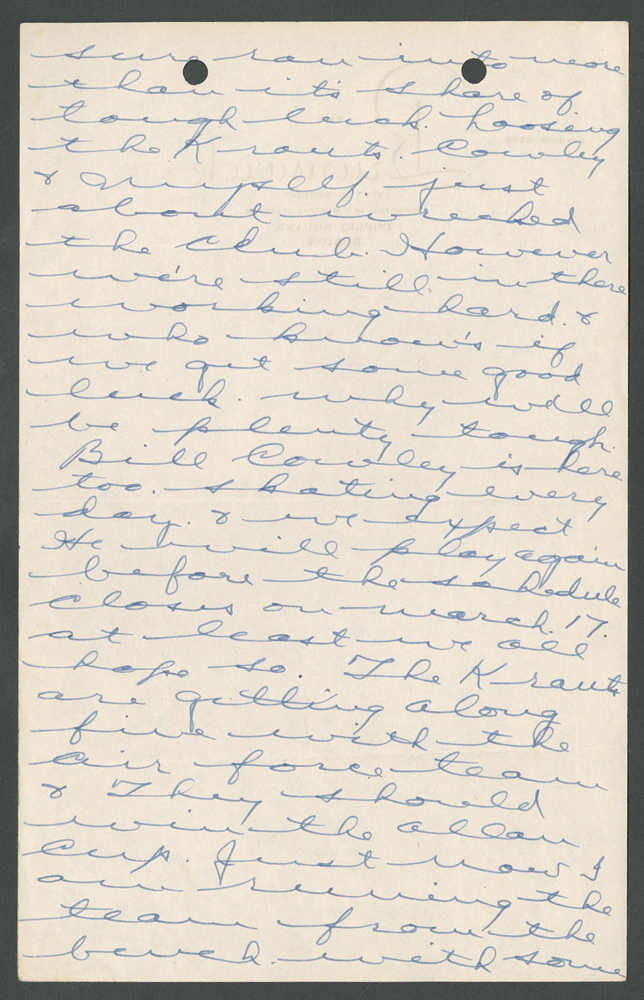 sure ran into more
than it's share of
tough luck. Loosing
the Krauts. Cowley
& myself just
about wrecked
the club. However
we're still in there
working hard. &
who know's if
we get some good
luck. why we'll
be plenty tough.
Bill Cowley is here
too. skating every
day. & we expect
He will play again
before the schedule
closes on march. 17.
at least we all
hope so. The Krauts
are getting along
fine with the
air force team
& They should
win the allan
cup. Just now I
am running the
team from the
bench. with some